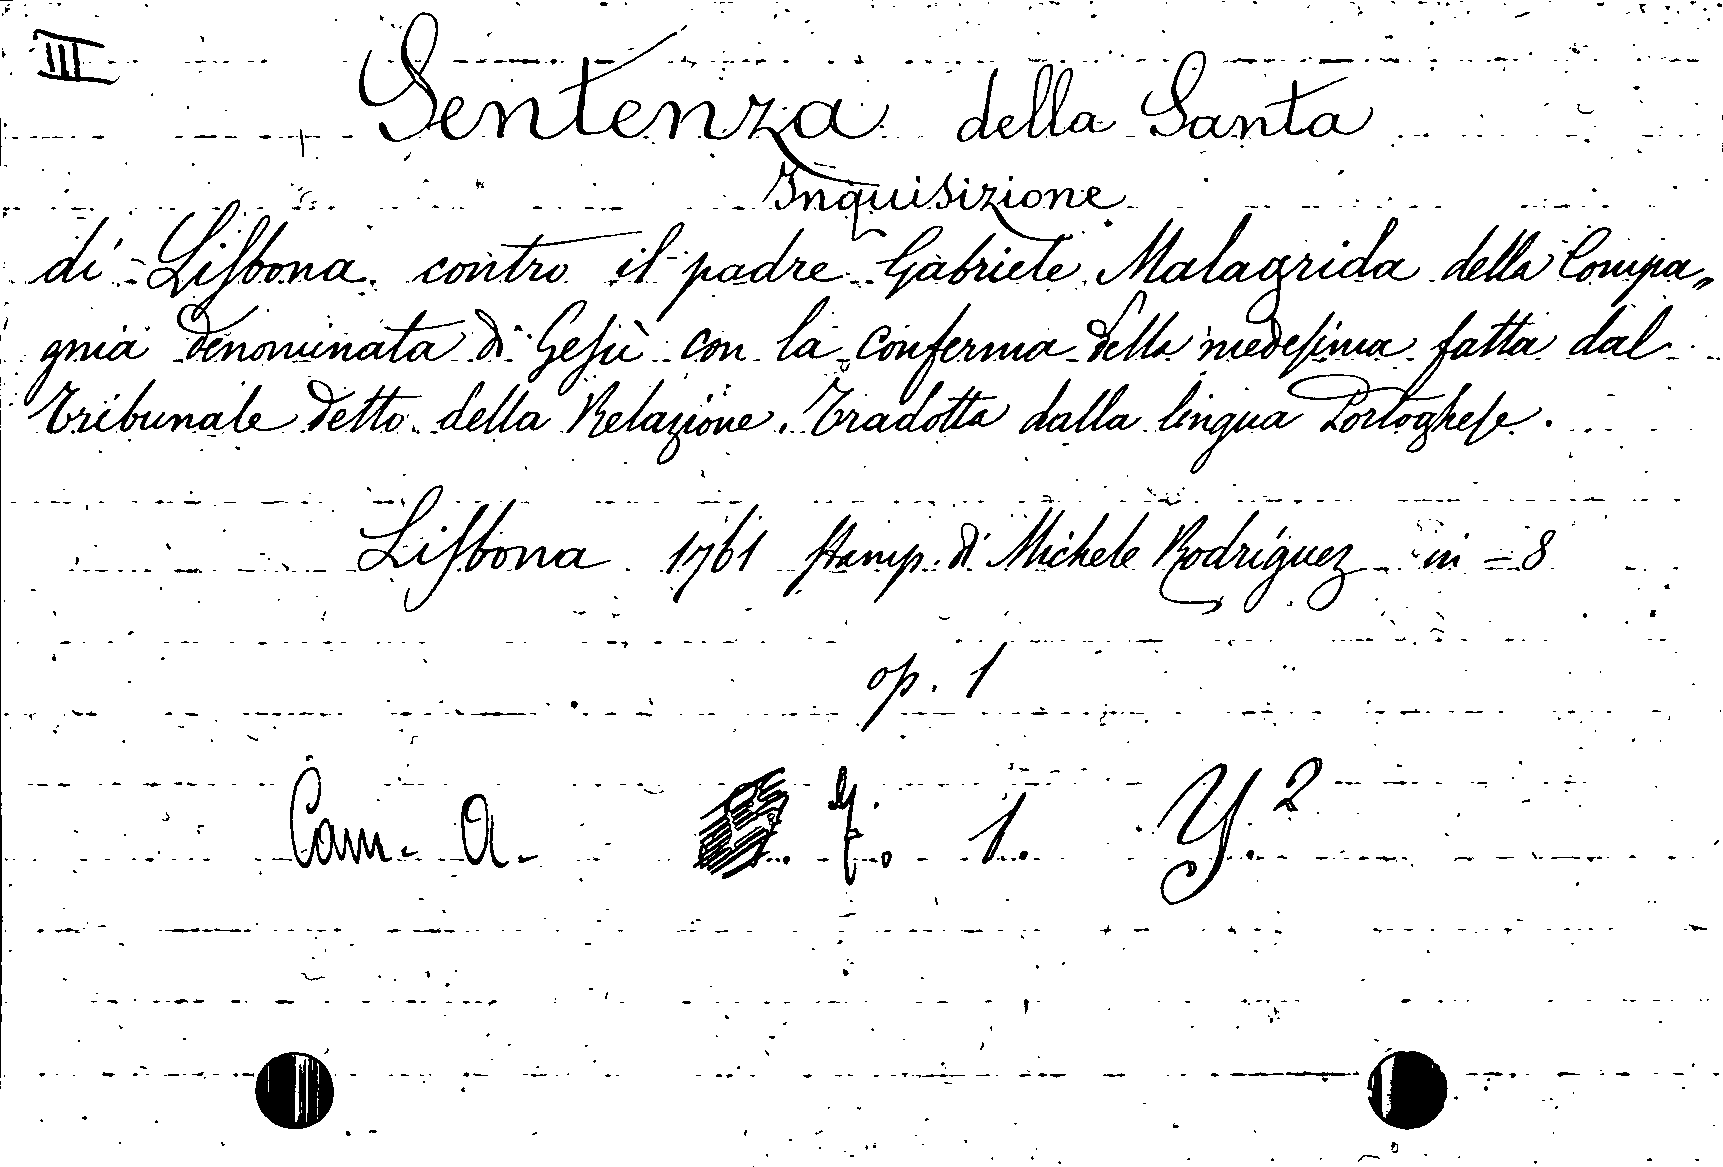 III
Sentenza della Santa
Inquisizione
di Lisbona contro il padre Gabriele Malagrida della Compa„
gnia denominata di Gesù con la conferma della medesima fatta dal
Tribunale detto della Relazione. Tradotta dalla lingua Portoghese.
Lisbona 1761 Stamp. di Michele Rodriguez in-8
op. 1
Cam. A. 1. Y.2